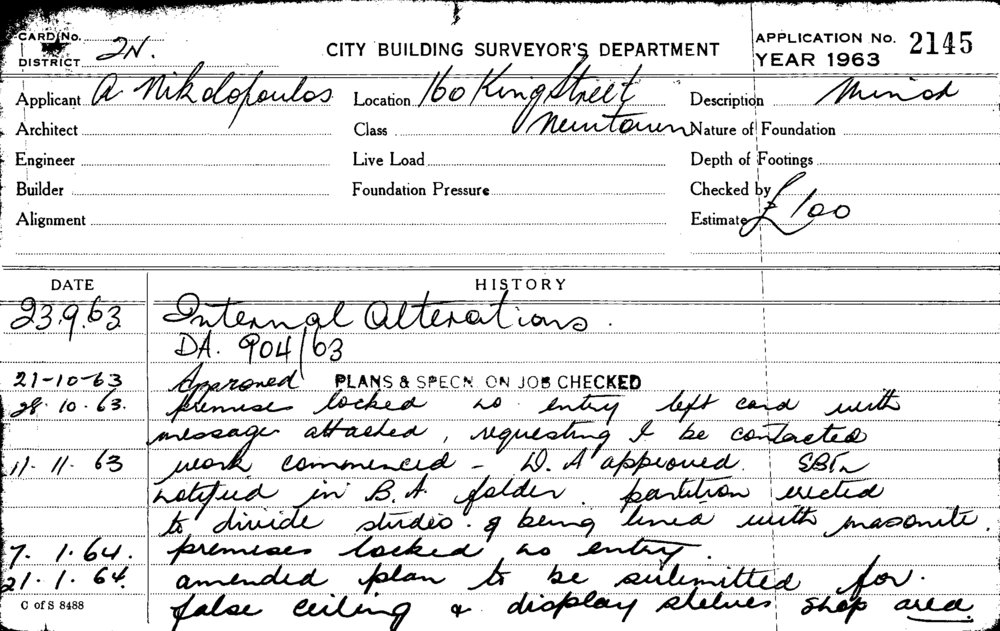 CARD No.
DISTRICT 2N.
CITY BUILDING SURVEYOR'S DEPARTMENT
APPLICATION No. 2145
YEAR 1963
Applicant A Nikolopoulos Location 160 King Street Description Minor
Architect Class Newtown Nature of Foundation
Engineer Live Load Depth of Footings
Builder Foundation Pressure Checked by
Alignment Estimate £100
DATE HISTORY
23.9.63 Internal Alterations.
DA. 904/63
21-10-63 Approved PLANS & SPECN. ON JOB CHECKED
28.10.63. premises locked no entry left card with
message attached, requesting I be contacted
11.11.63 work commenced - D.A approved.
notified in B.A. folder. partition erected
to divide studio. & being lined with masonite.
7.1.64. premises locked no entry.
21.1.64. amended plan to be submitted for.
C of S 8488 false ceiling & display shelves shop area.